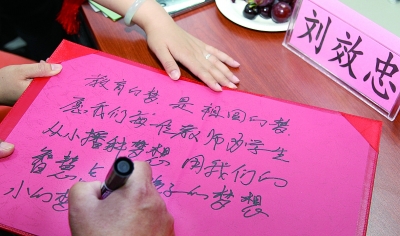 教育的梦 是祖国的梦
愿我们每一位教师为学生
从小播种梦想 用我们的
智慧点 孩子的梦想
小的梦
刘效忠